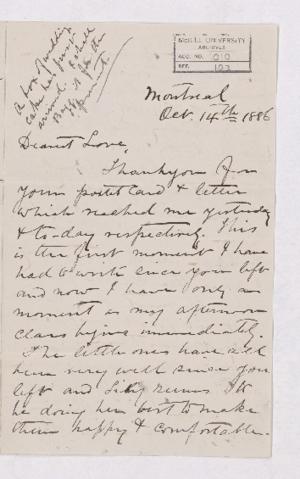 A box
cake has just
arrived. I shall
for the
present.
McGILL UNIVERSITY
ARCHIVES
ACC. NO. 1010
REF.
Montreal
Oct. 14th 1886
Dearest Love,
Thankyou for
your postal card & letter
which reached me yesterday
& to-day respectively. This
is the first moment I have
had to write since you left
and now I have only a
moment as my afternoon
class begins immediately.
The little ones have all
been very well since you
left and seems to
be doing her best to make
them happy & comfortable.